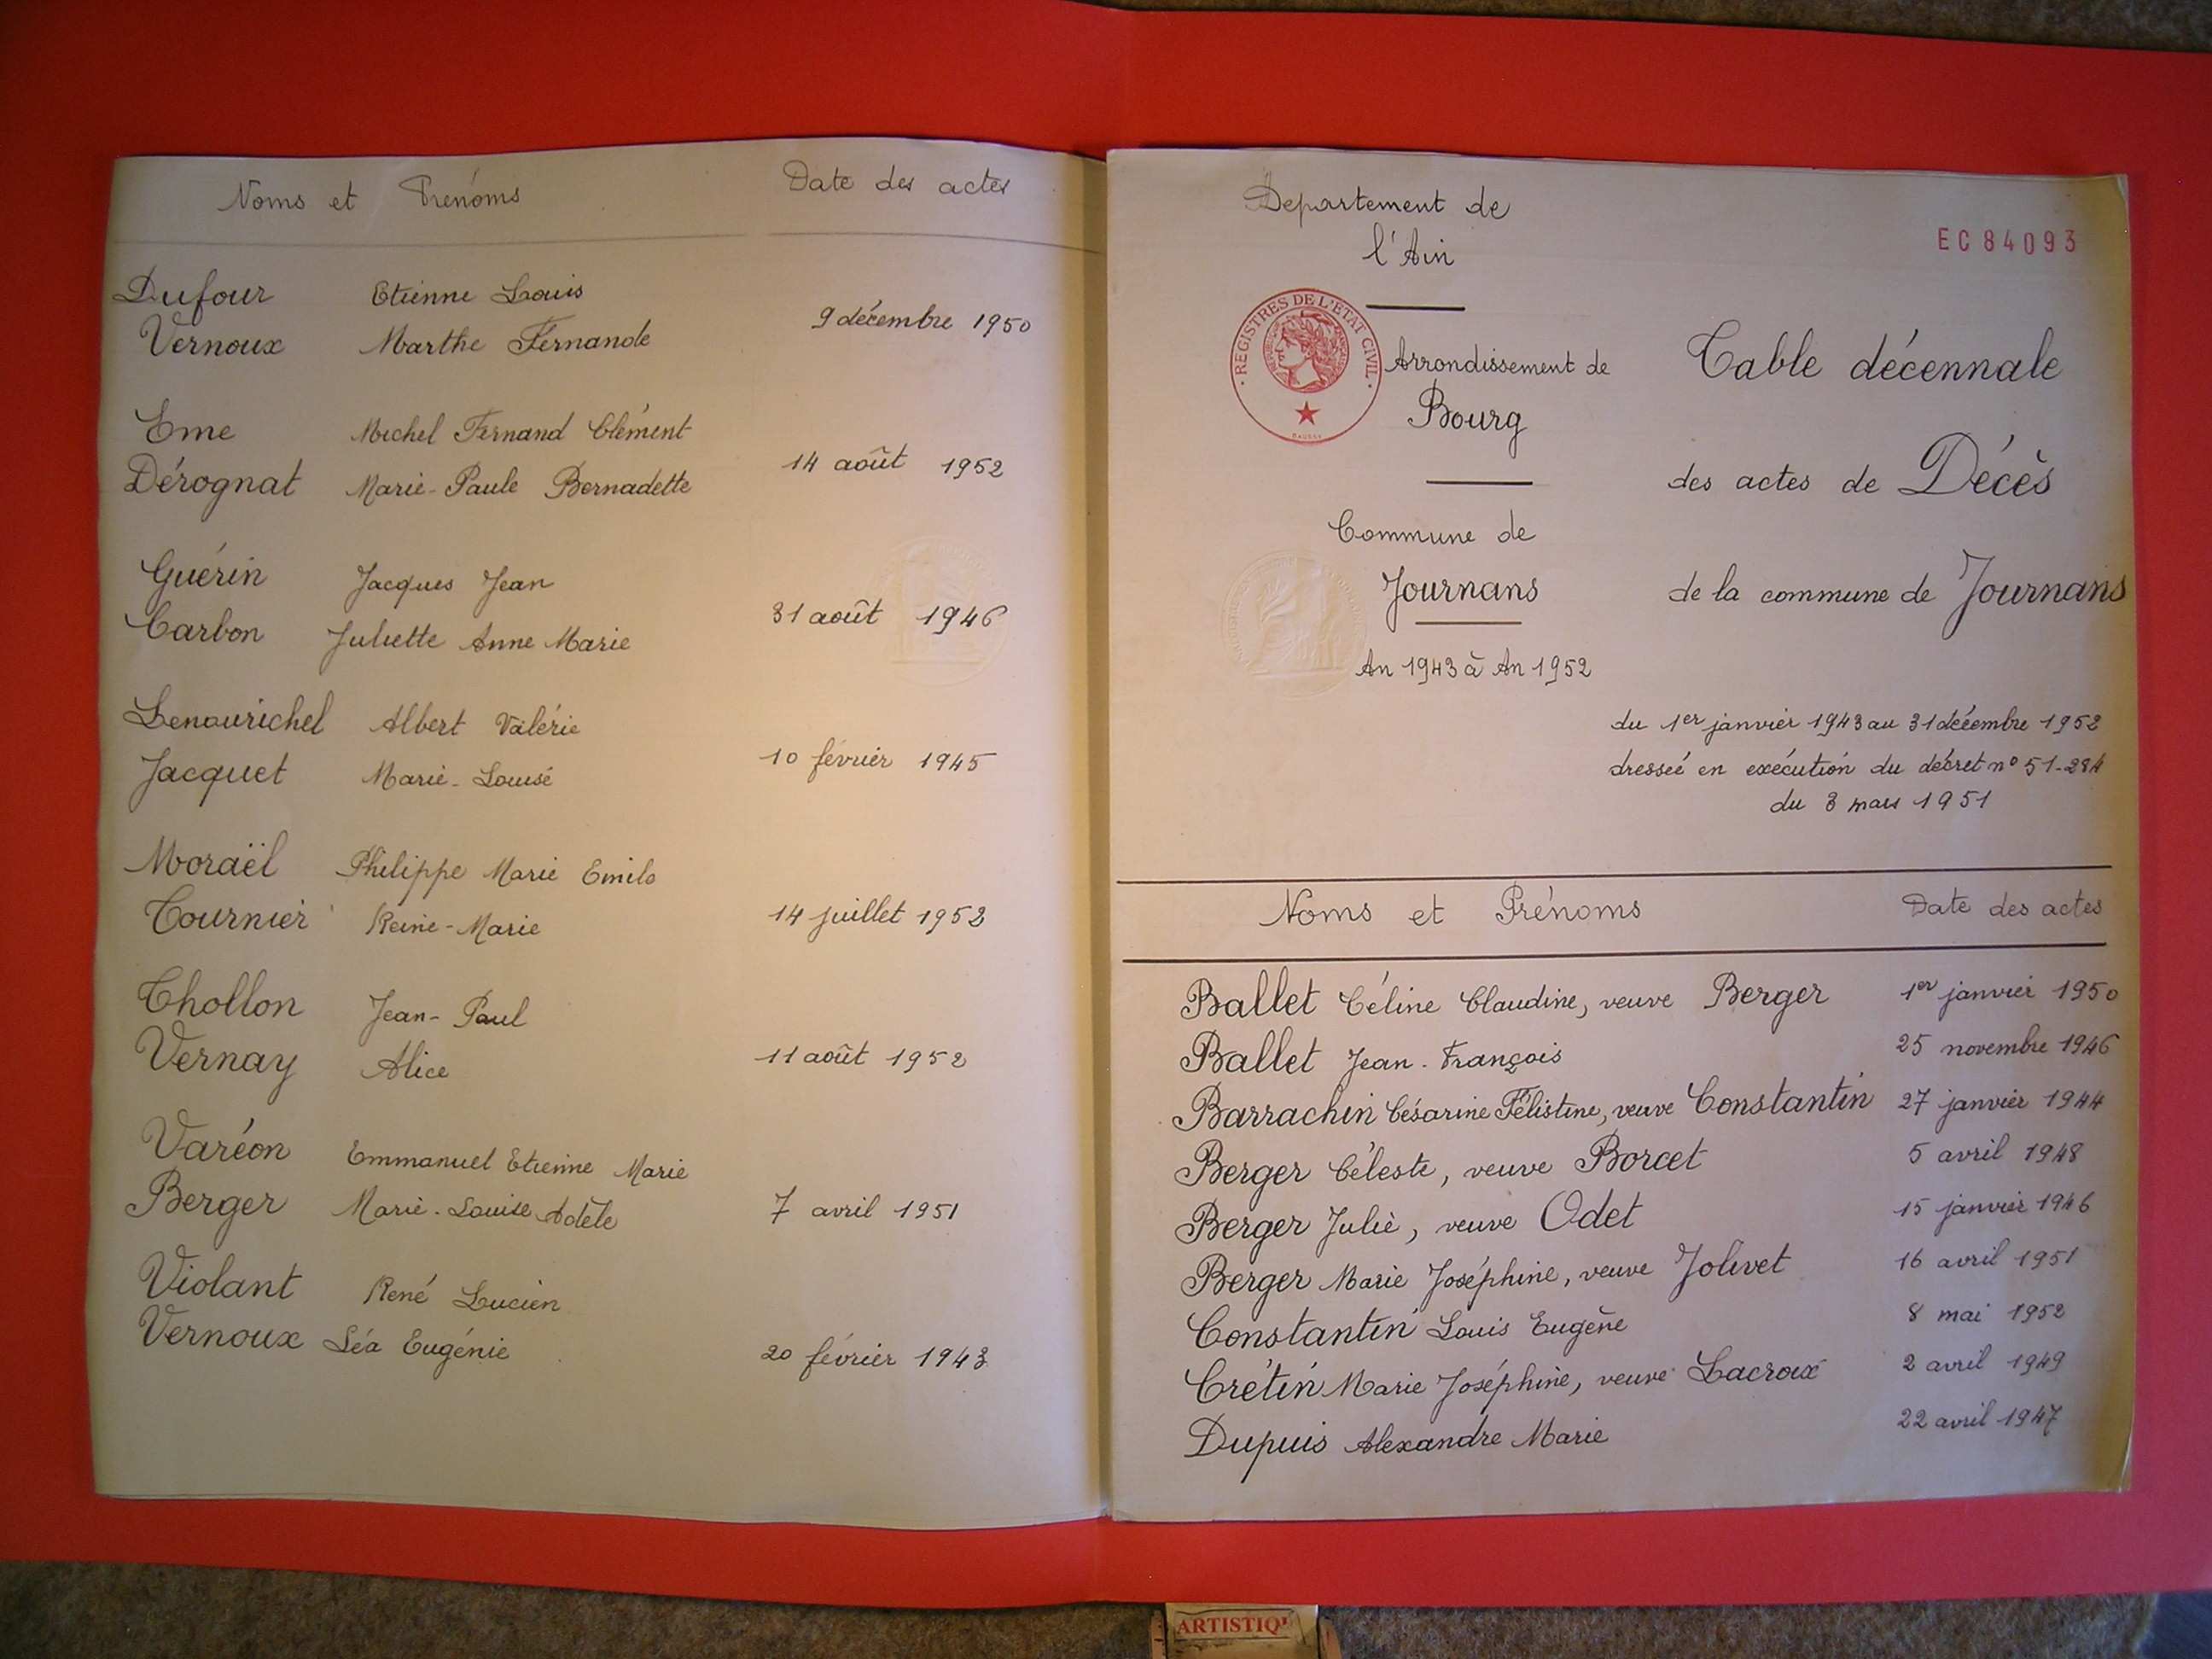 Noms et Prénoms Date des actes
Dufour Etienne Louis
9 décembre 1950
Vernoux Marthe Fernande
Eme Michel Fernand Clément
14 août 1952
Dérognat Marie-Paule Bernadette
Guérin Jacques Jean
31 août 1946
Carbon Juliette Anne Marie
Lenourichel Albert Valérie
10 février 1945
Jacquet Marie-Louise
Moraël Philippe Marie Emile
14 juillet 1952
Tournier Reine-Marie
Thollon Jean-Paul
11 août 1952
Vernay Alice
Varéon Emmanuel Etienne Marie
Berger Marie-Louise Adèle
7 avril 1951
Violant René Lucien
Vernoux Léa Eugénie
20 février 1943
Departement de
l'Ain
EC 84093
REGISTRES DE L'ETAT CIVIL
Arrondissement de
Bourg
Commune de
Journans
An 1943 à An 1952
Table décennale
des actes de Décès
de la commune de Journans
du 1er janvier 1943 au 31 décembre 1952
dressée en exécution du décret n° 51-284
du 3 mars 1951
Noms et Prénoms Date des actes
Ballet Céline Claudine, veuve Berger 1er janvier 1950
Ballet Jean-François 25 novembre 1946
Barrachin Césarine Félistine, veuve Constantin 27 janvier 1944
Berger Céleste, veuve Borcet 5 avril 1948
Berger Julie, veuve Odet 15 janvier 1946
Berger Marie Joséphine, veuve Jolivet 16 avril 1951
Constantin Louis Eugène 8 mai 1952
Crétin Marie Joséphine, veuve Lacroix 2 avril 1949
Dupuis Alexandre Marie 22 avril 1947
ARTISTIQ